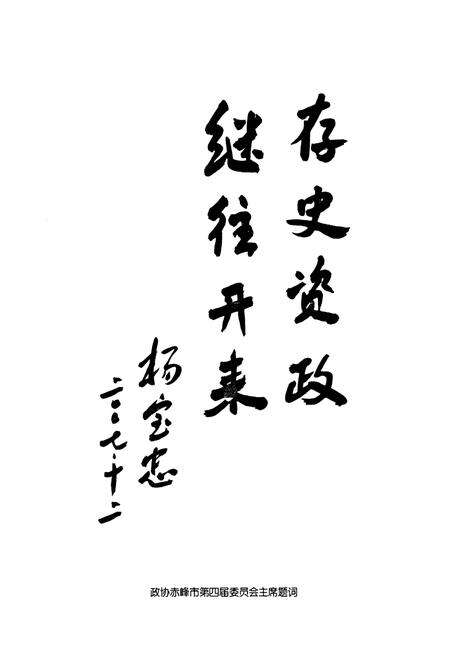 存史资政
继往开来
杨宝忠
二〇〇七·十二
政协赤峰市第四届委员会主席题词